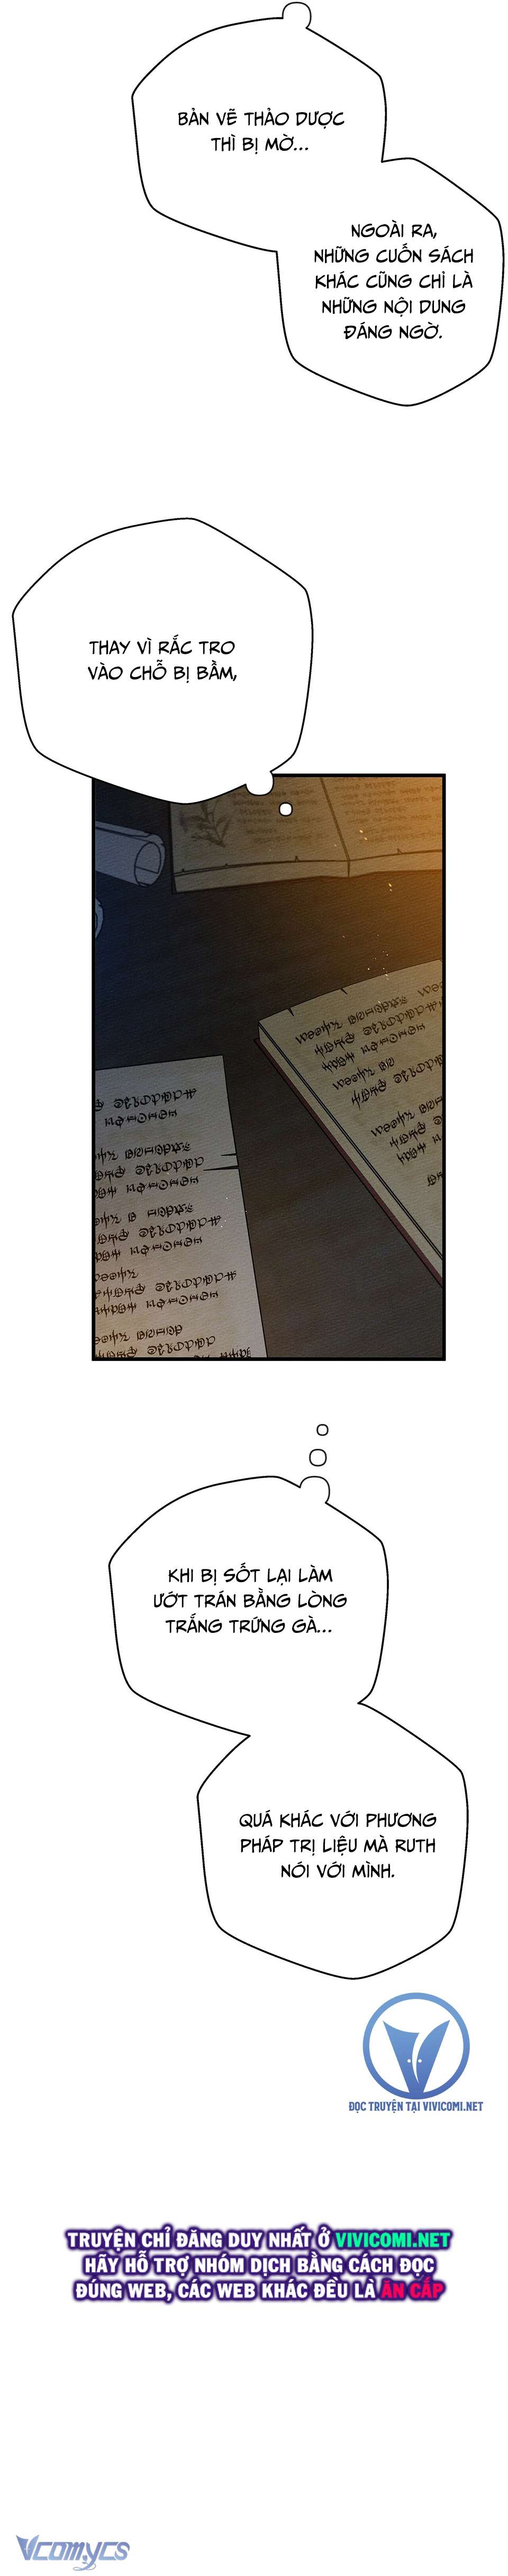 BẢN VẼ THẢO DƯỢC
THÌ BỊ MỜ...
NGOÀI RA,
NHỮNG CUỐN SÁCH
KHÁC CŨNG CHỈ LÀ
NHỮNG NỘI DUNG
ĐÁNG NGỜ.
THAY VÌ RẮC TRO
VÀO CHỖ BỊ BẦM,
KHI BỊ SỐT LẠI LÀM
ƯỚT TRÁN BẰNG LÒNG
TRẮNG TRỨNG GÀ...
QUÁ KHÁC VỚI PHƯƠNG
PHÁP TRỊ LIỆU MÀ RUTH
NÓI VỚI MÌNH.
ĐỌC TRUYỆN TẠI VIVICOMI.NET
TRUYỆN CHỈ ĐĂNG DUY NHẤT Ở VIVICOMI.NET
HÃY HỖ TRỢ NHÓM DỊCH BẰNG CÁCH ĐỌC
ĐÚNG WEB, CÁC WEB KHÁC ĐỀU LÀ ĂN CẮP
Vcomycs